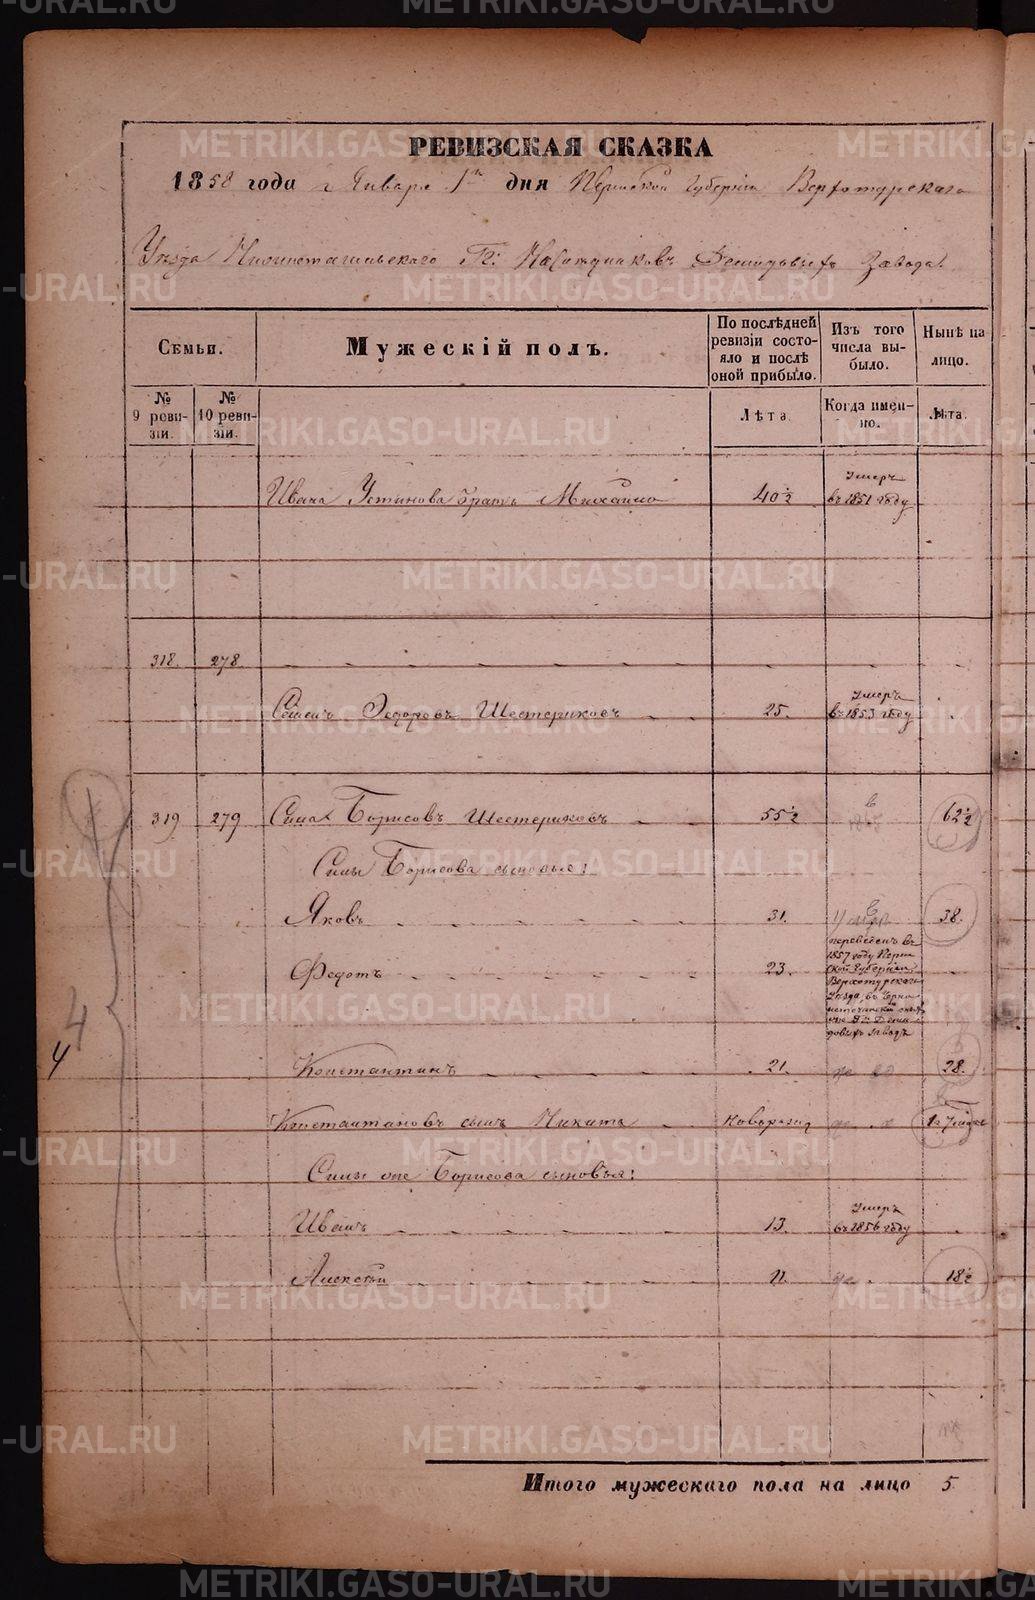 РЕВИЗСКАЯ СКАЗКА
1858 года Января 1го дня Пермской Губернiи Верхотурскаго
Уѣзда Нижнетагильскаго Гг: Наслѣдниковъ Демидовыхъ Завода.
Семьи.
Мужескiй полъ.
По послѣдней ревизiи состояло и послѣ оной прибыло.
Изъ того числа выбыло.
Нынѣ на лицо.
№ 9 ревизiи.
№ 10 ревизiи.
Лѣта.
Когда именно.
Лѣта.
Ивана Устинова братъ Михайло 40½ Умеръ въ 1851 году
318. 278.
Семенъ Федоровъ Шестериковъ 25. Умеръ въ 1853 году
319 279 Сила Борисовъ Шестериковъ 55½ 62½
Силы Борисова сыновья:
Яковъ 31. 38.
Федотъ 23. переведенъ въ 1857 году Пермской Губернiи Верхотурскаго Уѣзда, въ Черноисточинскiй Гг: Демидовыхъ заводъ
Константинъ 21. 28.
Константиновъ сынъ Никита новорожд
Силы же Борисова сыновья:
Иванъ 13. Умеръ въ 1856 году
Алексѣй 11. 18½
4
4
Итого мужескаго пола на лицо 5
METRIKI.GASO-URAL.RU